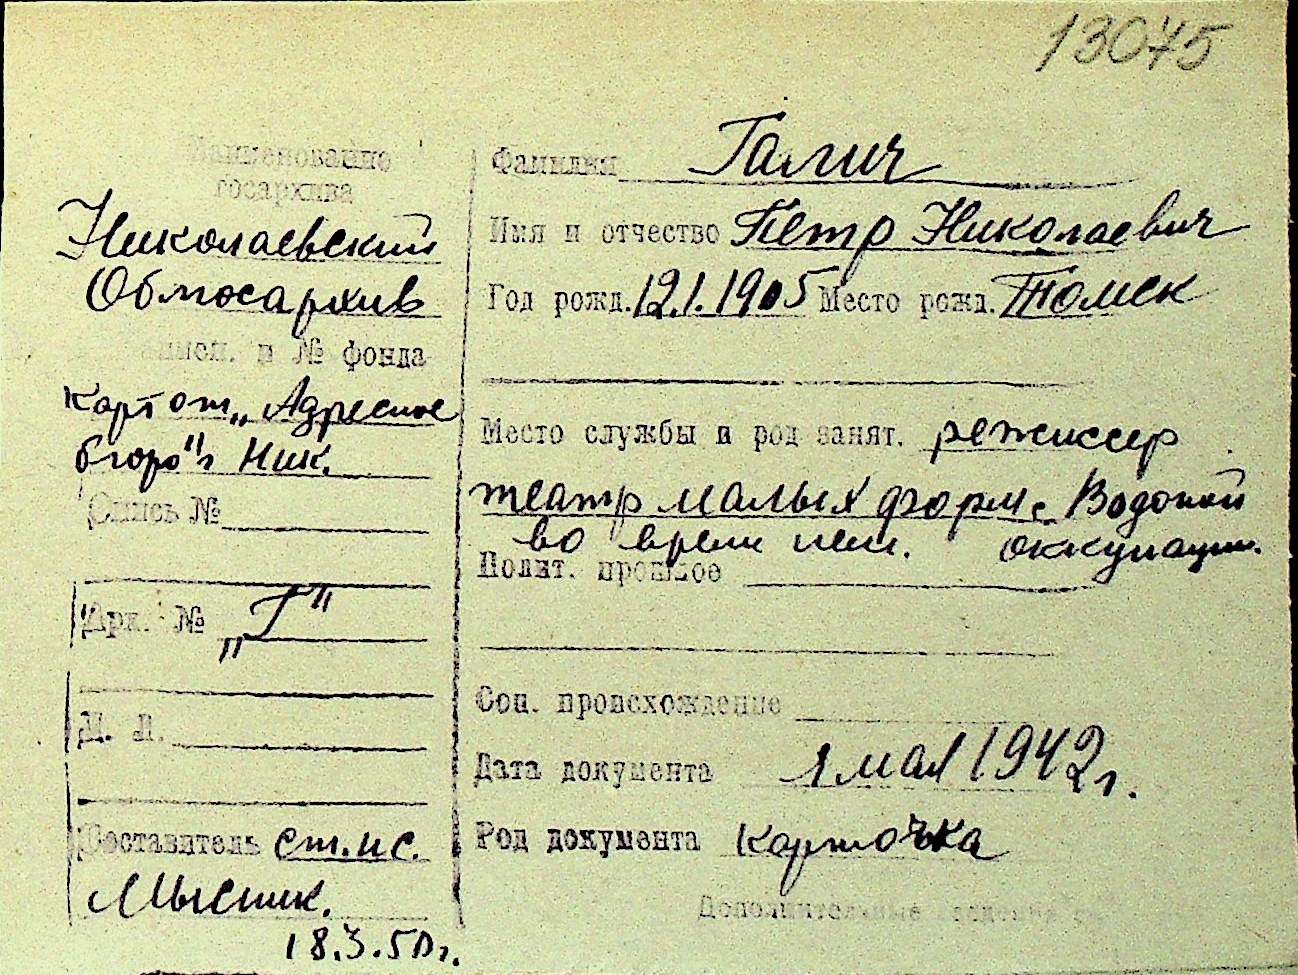 13075
Наименование
госархива
Николаевский
Облгосархив
и № фонда
Карт от„ Адресное
бюро" г Ник.
Опись №
Арх. № „Г"
М. Л.
Составитель ст. н с.
18.3.50г.
Фамилия Галич
Имя и отчество Петр Николаевич
Год рожд. 12.1.1905 Место рожд. Томск
Место службы и род занят. режиссер
театр малых форм с. Водопой
во время нем. оккупации.
Полит. прошлое
Соц. происхождение
Дата документа 1 мая 1942 г.
Род документа карточка
Дополнительные сведения